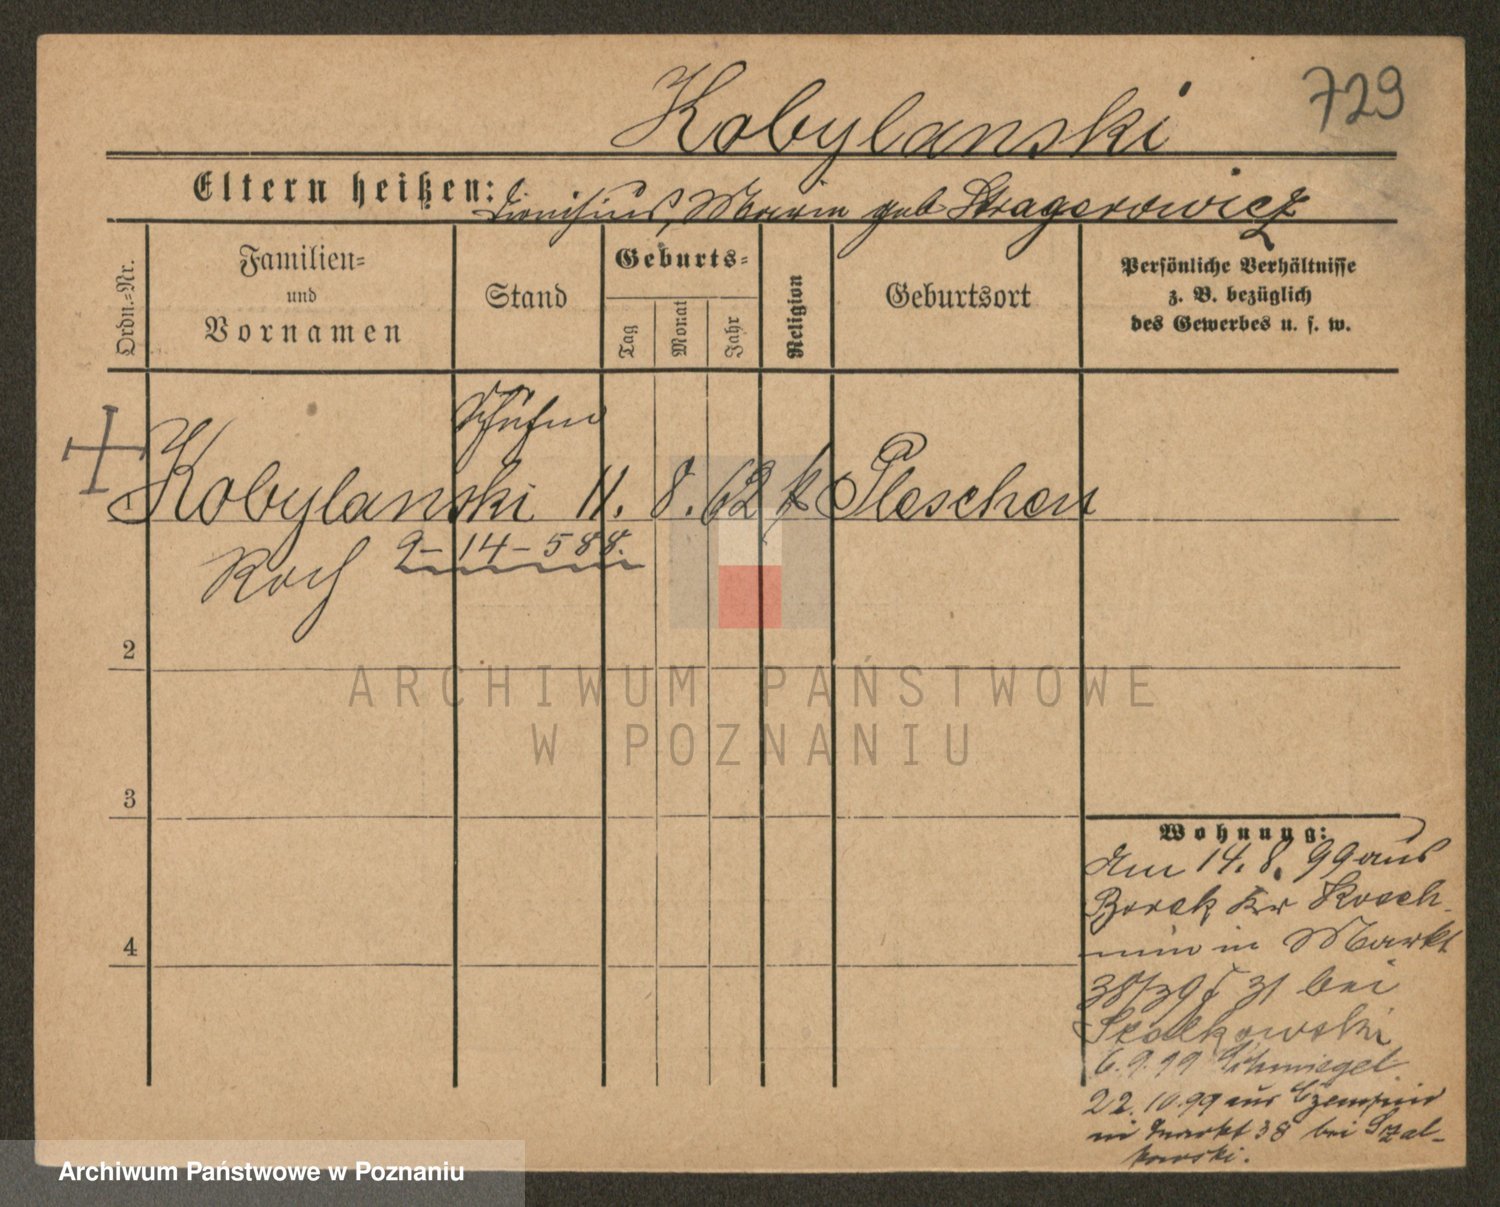 729
Kobylanski
Eltern heißen: Dionisius, Maria geb Stragerowicz
Ordn.=Nr.
Familien=
und
Vornamen
Stand
Geburts=
Tag
Monat
Jahr
Religion
Geburtsort
Persönliche Verhältnisse
z. B. bezüglich
des Gewerbes u. s. w.
1 Kobylanski 11. 8. 62 k Pleschen
Roch 9-14-588.
2
3
4
Wohnung:
Am 14. 8. 99 aus
Borek Kr Kosch-
min in Markt
38/39 bei
Szalkowski
6.9.99 Schmiegel
22.10.99 aus Czempin
in Markt 38 bei Szal-
kowski.
ARCHIWUM PAŃSTWOWE
W POZNANIU
Archiwum Państwowe w Poznaniu